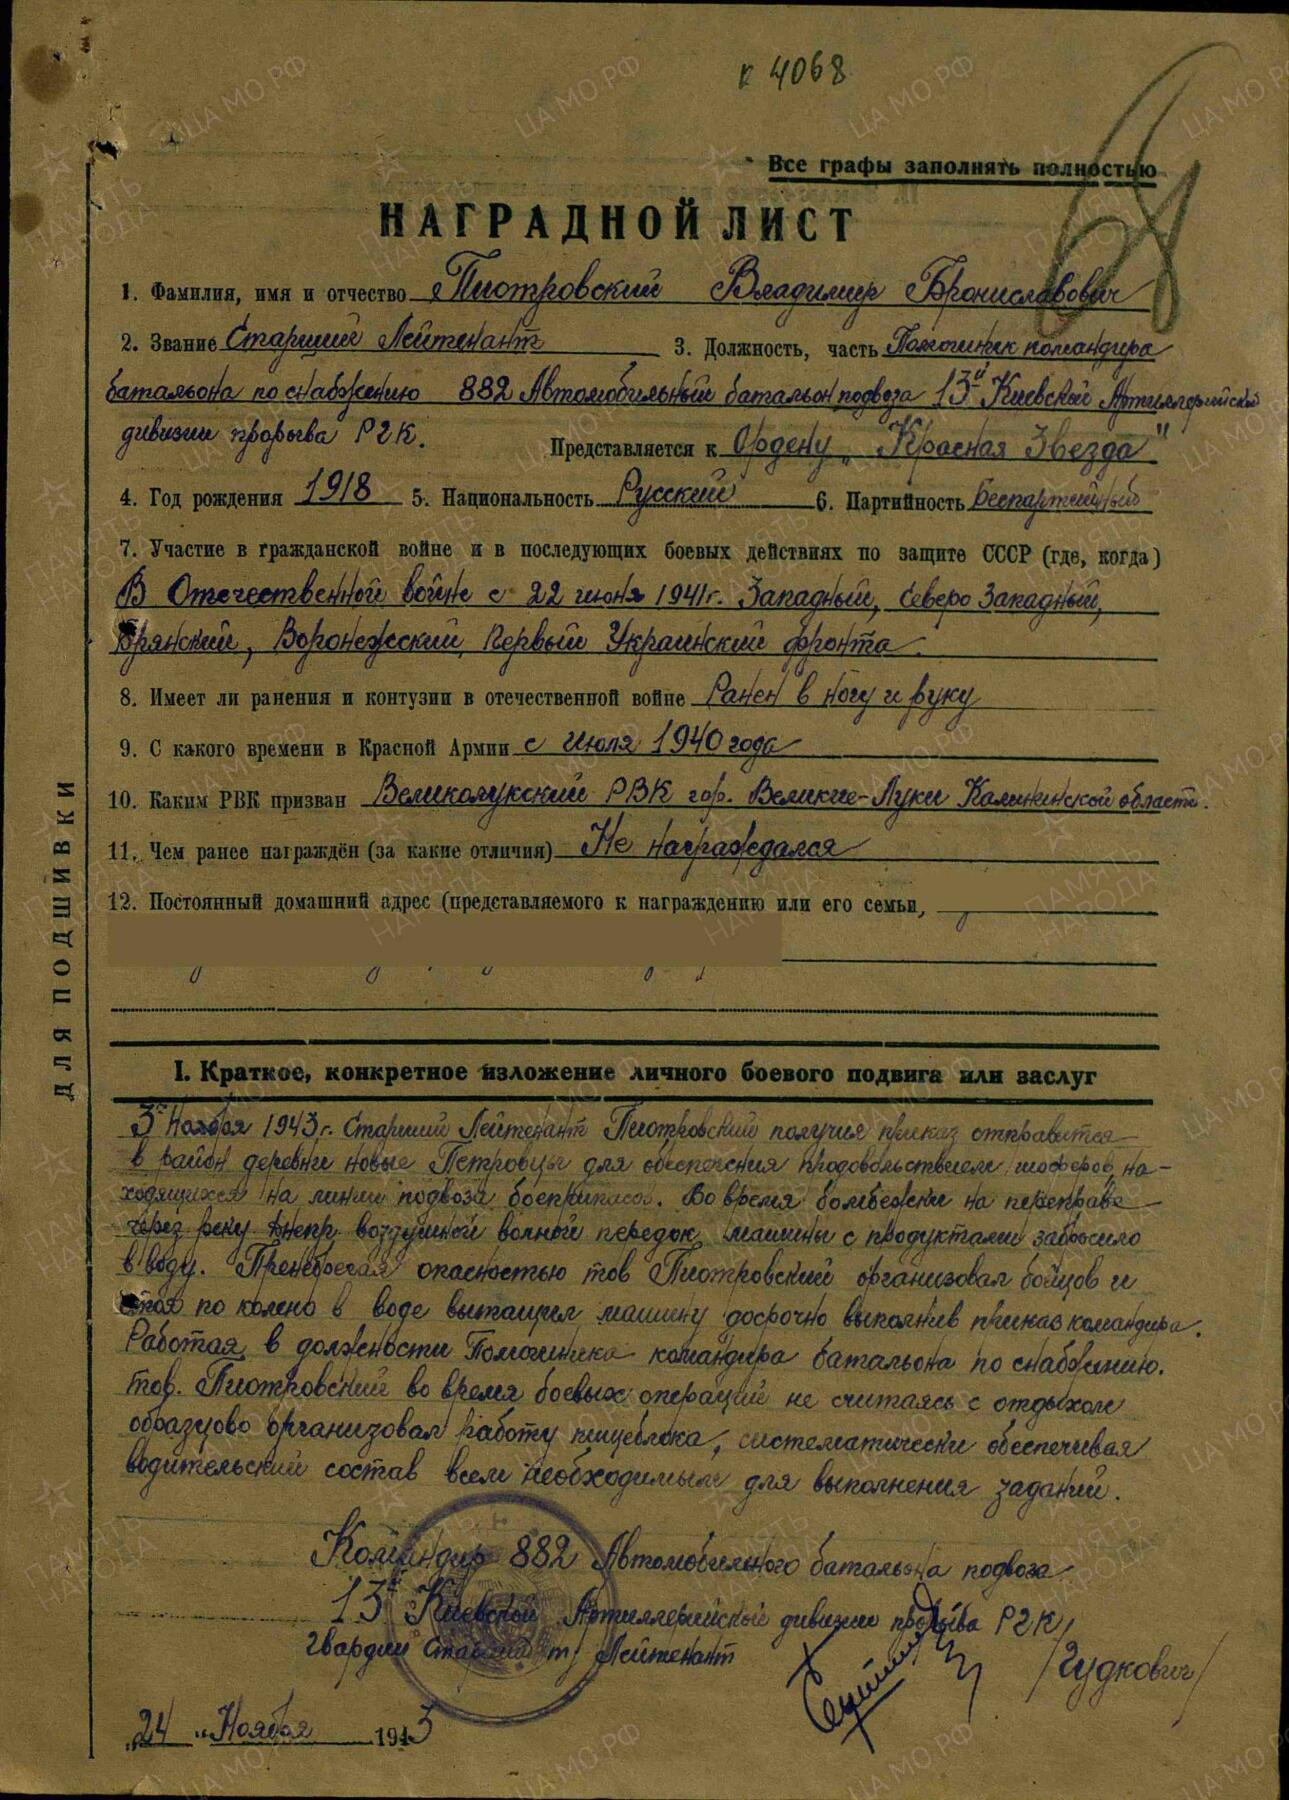 к 4068
68
Все графы заполнять полностью
НАГРАДНОЙ ЛИСТ
1. Фамилия, имя и отчество Пиотровский Владимир Брониславович
2. Звание Старший Лейтенант 3. Должность, часть Помощник командира
батальона по снабжению 882 Автомобильный батальон подвоза 13й Киевской Артиллерийской
дивизии прорыва РГК.
Представляется к Ордену „Красная Звезда"
4. Год рождения 1918 5. Национальность Русский 6. Партийность Беспартийный
7. Участие в гражданской войне и в последующих боевых действиях по защите СССР (где, когда)
В Отечественной войне с 22 июня 1941 г. Западный, Северо Западный,
Брянский, Воронежский, Первый Украинский фронта
8. Имеет ли ранения и контузии в отечественной войне Ранен в ногу и руку
9. С какого времени в Красной Армии с июля 1940 года
10. Каким РВК призван Великолукский РВК гор. Великие-Луки Калининской области.
11. Чем ранее награждён (за какие отличия) Не награждался
12. Постоянный домашний адрес (представляемого к награждению или его семьи,
ДЛЯ ПОДШИВКИ
I. Краткое, конкретное изложение личного боевого подвига или заслуг
3го Ноября 1943 г. Старший Лейтенант Пиотровский получил приказ отправится
в район деревни новые Петровцы для обеспечения продовольствием шоферов, на-
ходящихся на линии подвоза боеприпасов. Во время бомбежки на переправе
через реку Днепр воздушной волной передок машины с продуктами забросило
в воду. Пренебрегая опасностью тов Пиотровский организовал бойцов и
стоя по колено в воде вытащил машину досрочно выполнив приказ командира.
Работая в должности Помощника командира батальона по снабжению.
тов. Пиотровский во время боевых операций не считаясь с отдыхом
образцово организовал работу пищеблока, систематически обеспечивая
водительский состав всем необходимым для выполнения заданий.
Командир 882 Автомобильного батальона подвоза
13й Киевской Артиллерийской дивизии прорыва РГК
Гвардии Старший т/ Лейтенант /Гудкович/
„24 " Ноября 1943
ЦА МО РФ
ПАМЯТЬ НАРОДА